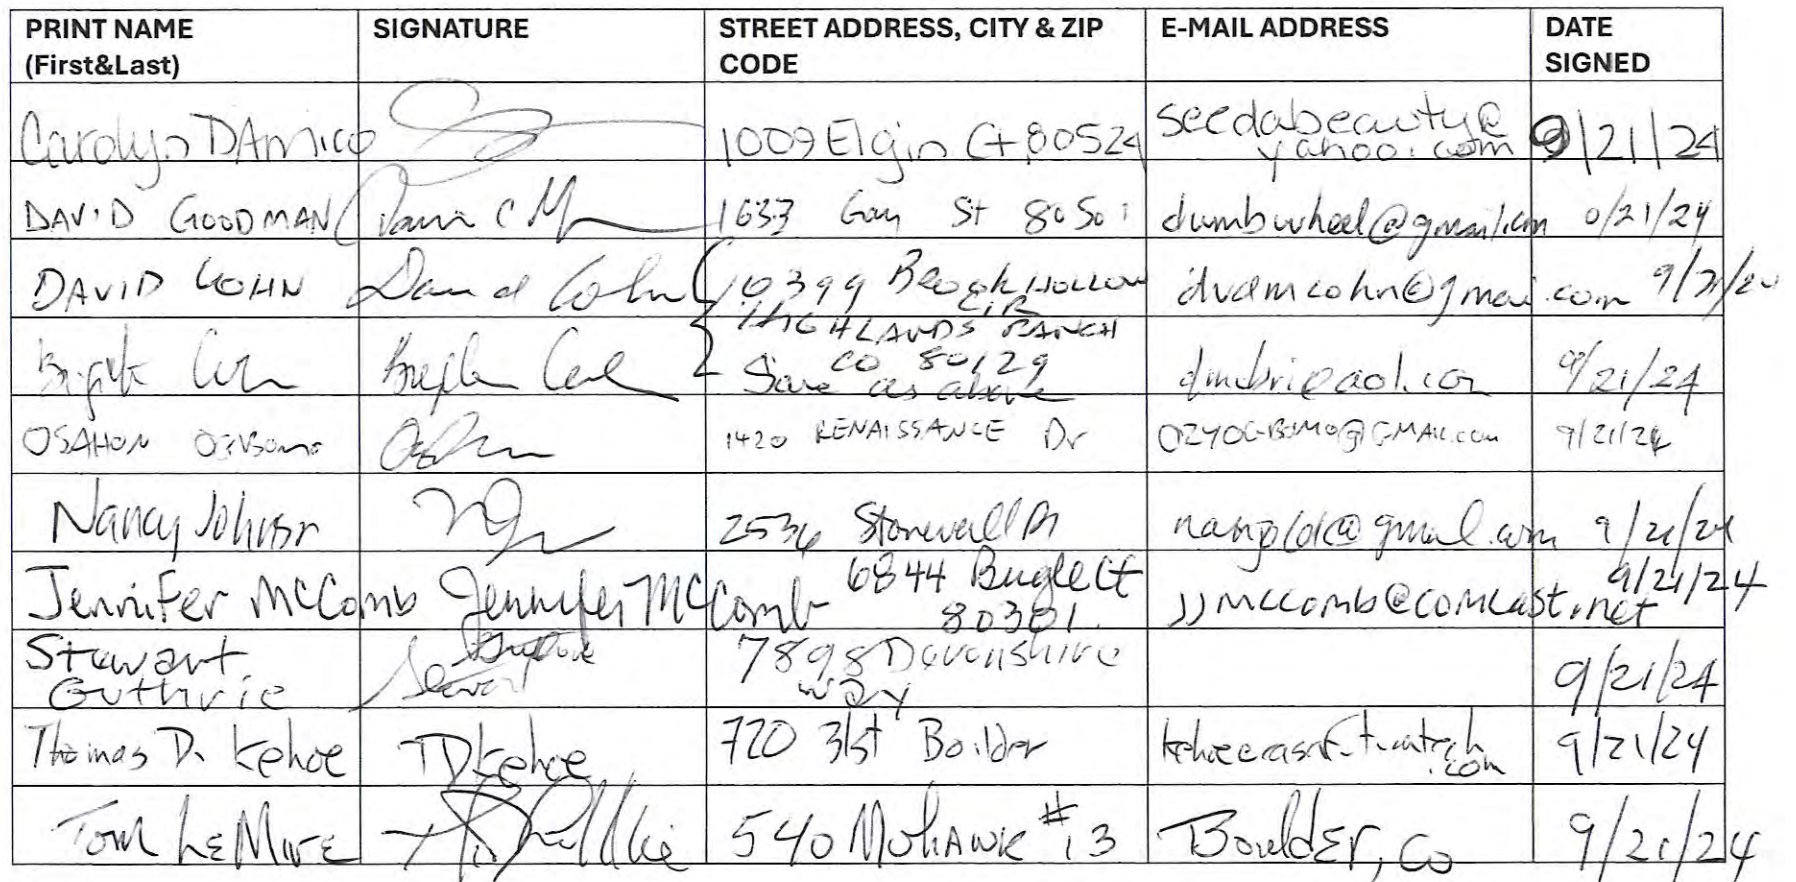 PRINT NAME (First&Last) SIGNATURE STREET ADDRESS, CITY & ZIP CODE E-MAIL ADDRESS DATE SIGNED
Carolyn DAmico 1009 Elgin Ct 80524 seedabeauty@yahoo.com 9/21/24
DAVID GOODMAN 1633 Gay St 8050 dumbwheel@gmail.com 0/21/24
DAVID COHN David Cohn 10399 Brook HOLLOW CIR dvdmcohn@gmai.com
HIGHLANDS RANCH
CO 80129
Same as above 9/21/24
OSAHON 1420 RENAISSANCE Dr OZYOGBOMO@GMAIL.com 9/21/24
Nancy Johnson 2536 Stonewall 9/21/24
Jennifer McComb Jennifer McComb 6844 Bugle Ct 80301 jjmccomb@comcast.net 9/21/24
Stewart Guthrie Stewart Guthrie 7898 Devonshire way 9/21/24
Thomas D. Kehoe TDKehoe 720 31st Boulder 9/21/24
Tom LeMire 540 MOHAWK #13 Boulder, CO 9/21/24